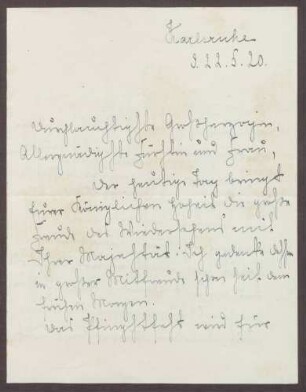 Karlsruhe
d. 22. 5. 20.
Durchlauchtigste Großherzogin,
Allergnädigste Fürstin und Frau,
Der heutige Tag bringt
Eurer Königlichen Hoheit die große
Freude des Wiedersehens mit
Ihrer Majestät. Ich gedenke
in großer Mitfreude schon seit dem
frühen Morgen.
Das Pfingstfest wird für